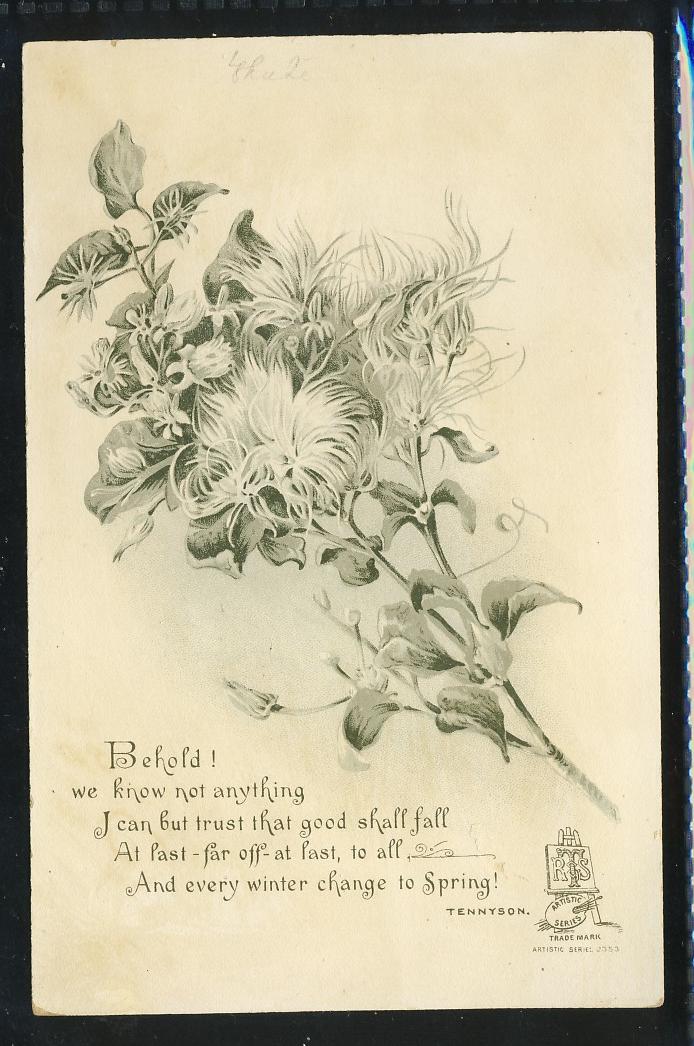 Behold!
we know not anything
I can but trust that good shall fall
At last - far off - at last, to all,
And every winter change to Spring!
TENNYSON.
RTS
ARTISTIC
SERIES
TRADE MARK
ARTISTIC SERIES 2353